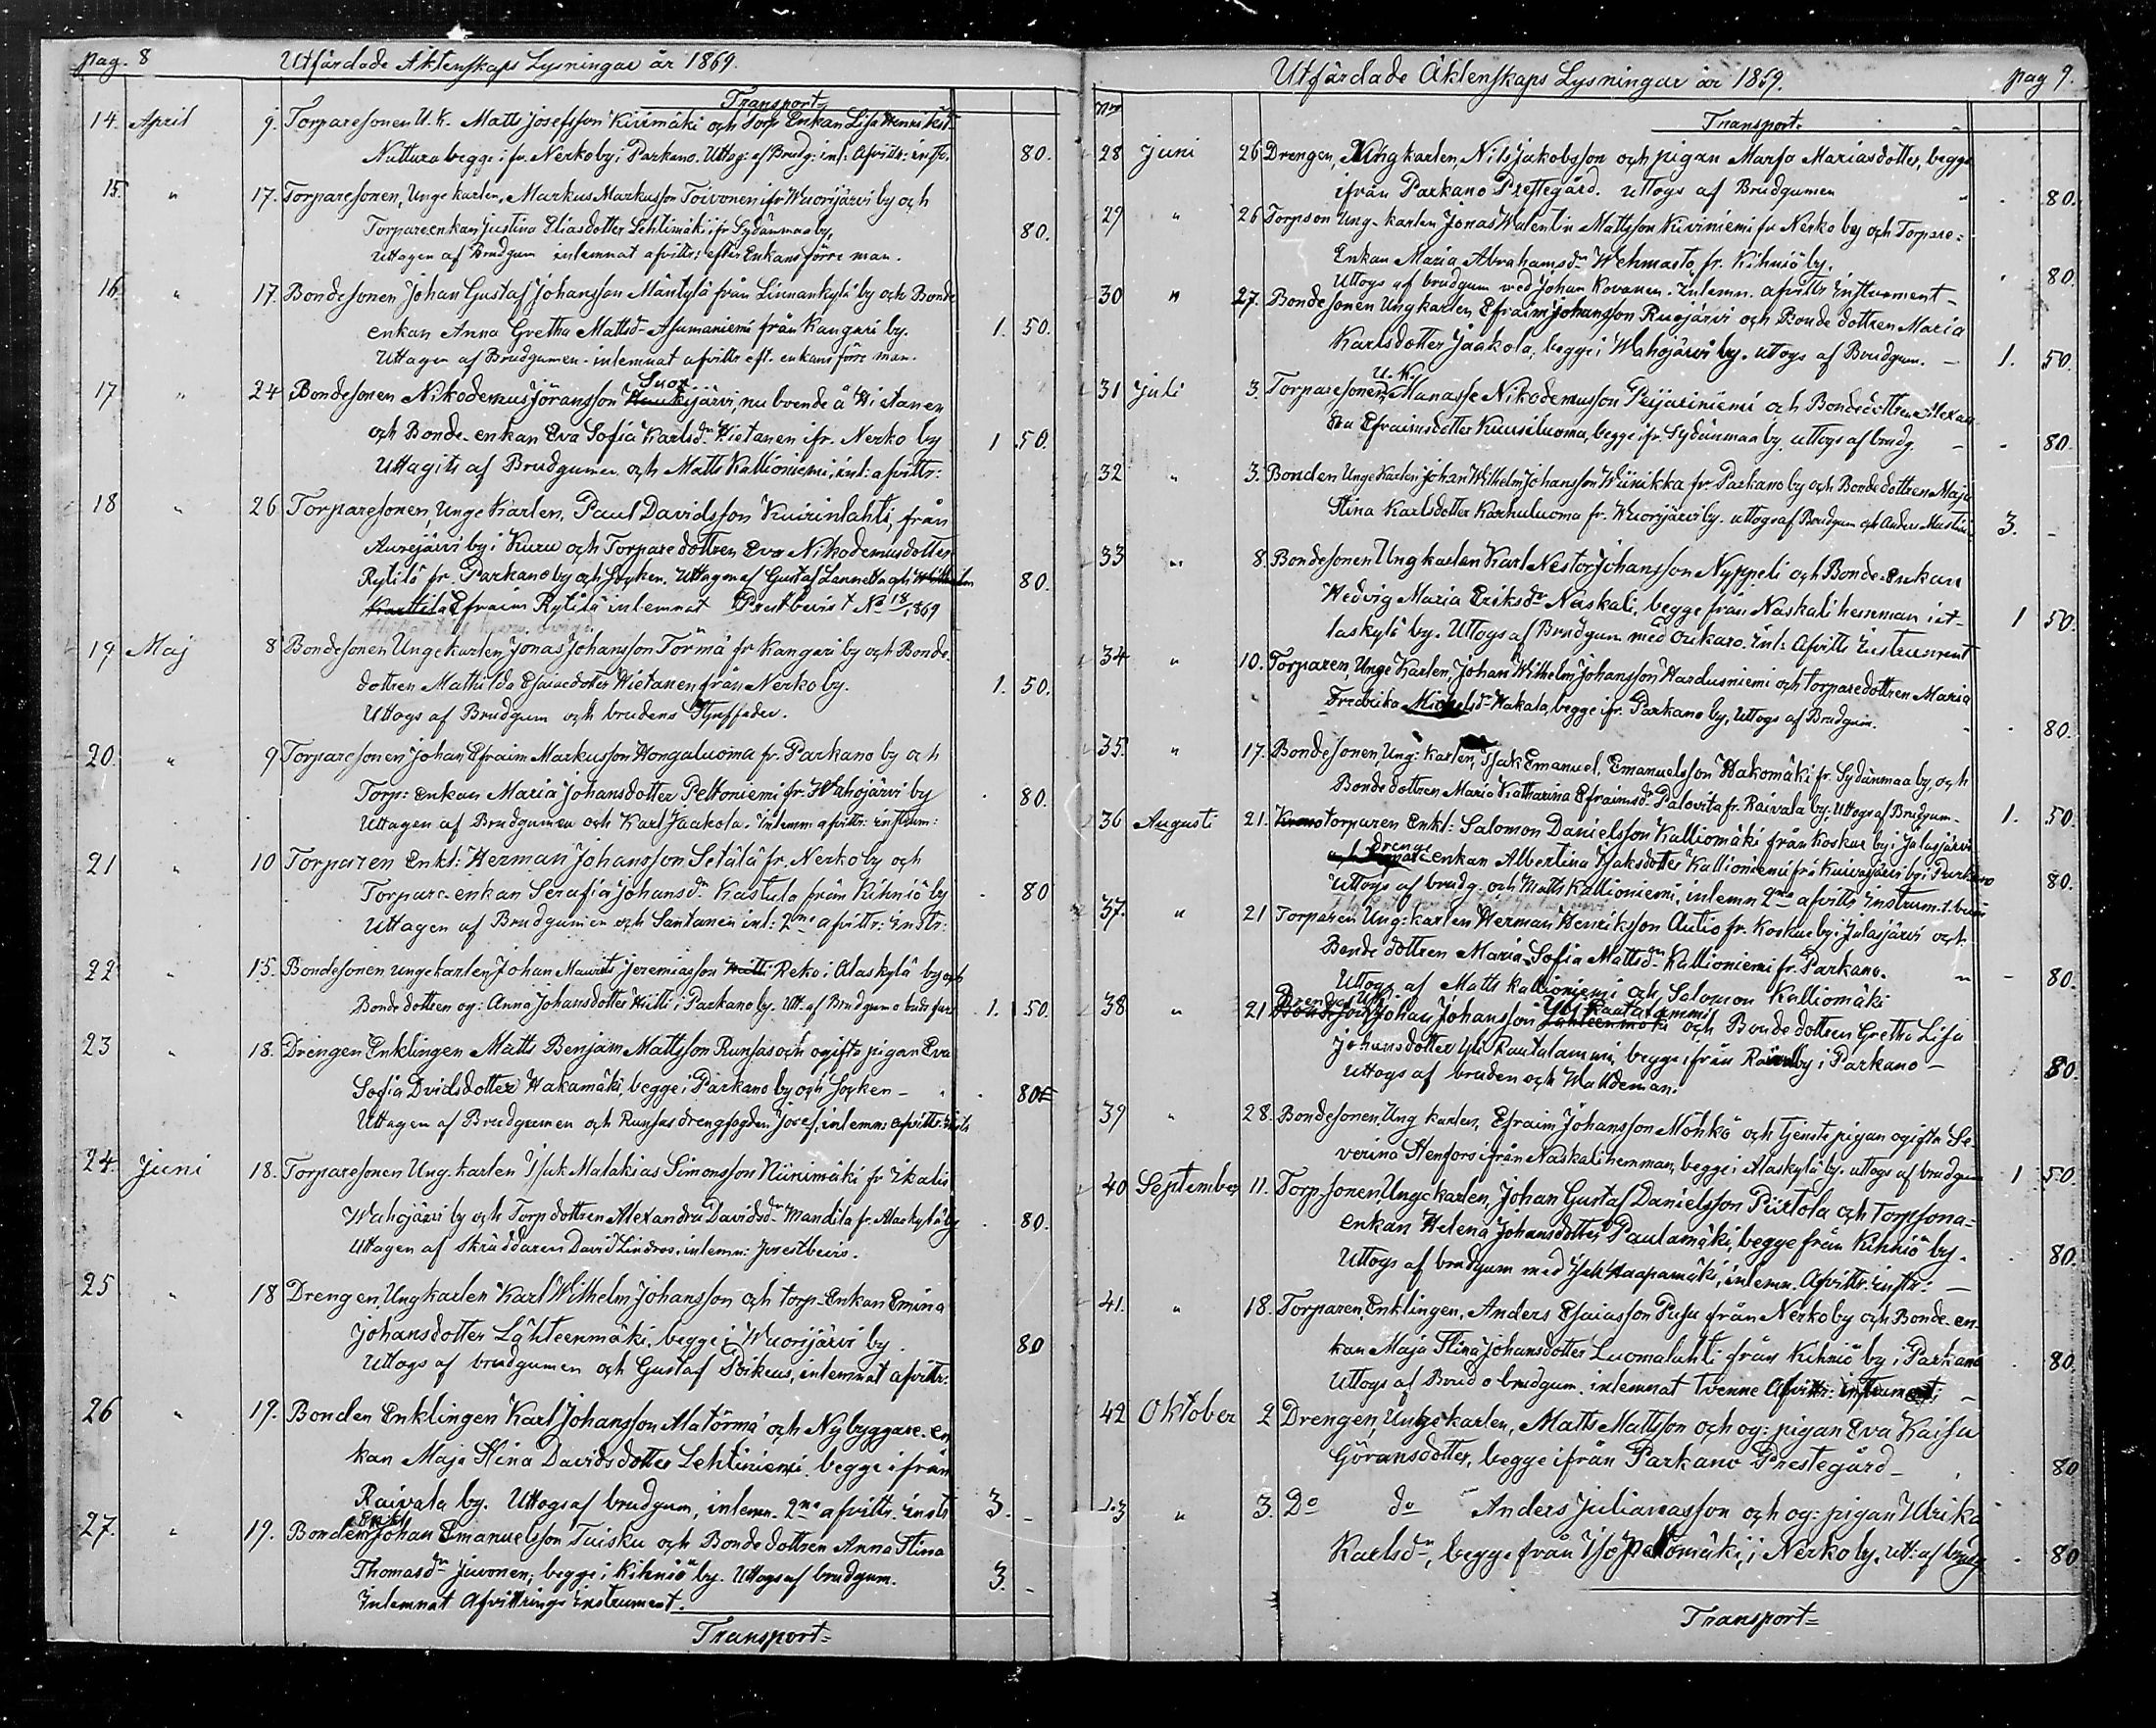 pag. 8 Utfärdade Äktenskaps Lysningar år 1869.
Transport
14. April 9. Torparesonen U. K. Matts Josefsson Kiiimäki och Torp Enkan Lisa Henriksd
Nuttura begge ifr. Nerkoby i Parkano. Uttog: af Brudg: inl: Afvittr: instr. 80.
15. " 17. Torparesonen, Unge karlen, Markus Markusson Toivonen ifr Wuorijärvi by och
Torpareenkan Justina Eliasdotter Lehtimäki ifr Sydänmaa by, 80.
Uttagen af Brudgum inlemnat afvittr: efter Enkans förre man.
16. " 17. Bondesonen Johan Gustaf Johansson Mäntylä från Linnankylä by och Bonde
enkan Anna Gretha Mattsd- Asumaniemi från Kangari by. 1. 50.
Uttagen af Brudgumen - inlemnat afvittr eft. enkans förre man.
17 " 24 Bondesonen Nikodemus Jöransson Suojärvi, nu boende å Hietanen
och Bonde-enkan Eva Sofia Karlsdr Hietanen ifr. Nerko by 1 50.
Uttagits af Brudgumen och Matts Kallioniemi, inl: afvittr:
18 " 26 Torparesonen, Unge Karlen, Paul Davidsson Kuirinlahti, från
Aurejärvi by i Kuru och Torparedottren Eva Nikodemusdotter
Rytilä fr. Parkano by och Socken. Uttagen af Gustaf Lannetta och Wilhelm 80.
Kurttila Efraim Rytilä inlemnat Prestbevis t No 18/1869
19 Maj 8 Bondesonen Ungekarlen Jonas Johansson Törmä fr Kangari by och Bonde
dottren Mathilda Esaiaedotter Hietanen från Nerko by. 1. 50.
Uttogs af Brudgum och brudens Styffader.
20. " 9 Torparesonen Johan Efraim Markusson Hongaluoma fr. Parkano by och
Torp: Enkan Maria Johansdotter Peltoniemi fr. Wahojärvi by 80.
Uttagen af Brudgumen och Karl Jaakola. Inlemn afvittr: instrum:
21 " 10 Torparen Enkl: Herman Johansson Setälä fr. Nerko by och
Torpare-enkan Serafia Johansdr Kastula från Kihniö by 80
Uttagen af Brudgumen och Santanen inl: 2ne afvittr: Instr:
22 " 15. Bondesonen ungekarlen Johan Maurits Jeremiasson Hitti Reko i Alaskylä by och
Bondedottren og: Anna Johansdotter Hitti i Parkano by. Utt. af Brudgum o buds fars 1. 50.
23 " 18. Drengen Enklingen Matts Benjam Mattsson Runsas och ogifta pigan Eva
Sofia Dvidsdotter Hakamäki, begge i Parkano by och Socken - 80
Uttagen af Brudgumen och Runsas drengfogden Josef, inlemn: afvittr: Instr
24. Juni 18. Torparesonen Ung-karlen Isak Malakias Simonsson Niinimäki fr Ikalis
Wahojärvi by och Torpdottren Alexandra Davidsdr Mandila fr. Alaskylä by 80.
Uttagen af Skräddaren David Lindros. inlemn: prestbevis.
25 " 18 Drengen, Ungkarlen Karl Wilhelm Johansson och torp-Enkan Emina
Johansdotter Lähteenmäki, begge i Wuorijärvi by. 80
Uttogs af brudgumen och Gustaf Porkus, inlemnat afvittr:
26 " 19. Bonden Enklingen Karl Johansson Alatörmä och Nybyggare-en
kan Maja Stina Davidsdotter Lehtiniemi, begge ifrån
Raivala by. Uttogs af brudgum, inlemn. 2ne afvittr. instr 3. -
27. " 19. Bonden Enkl Johan Emanuelsson Tuisku och Bondedottren Anna Stina
Thomasdr Juvonen, begge i Kihniö by. Uttogs af brudgum. 3. -
Inlemnat Afvittrings instrument.
Transport
Utfärdade Äktenskaps Lysningar år 1869. pag 9.
Nro Transport
28 Juni 26 Drengen, Ungkarlen Nils Jakobsson och pigan Marja Mariasdotter, begge
ifrån Parkano Prestegård. uttogs af Brudgumen 80.
29 " 26 Torpson Ung-karlen Jonas Walentin Mattsson Kiviniemi fr Nerko by och Torpare=
Enkan Maria Abrahamsdr Wehmasto, fr. Kihniö by. 80.
Uttogs af brudgum med Johan Kovanen. Inlemn. afvittr Instrument -
30 " 27. Bondesonen Ungkarlen Efraim Johansson Ruojärvi och Bondedottren Maria
Karlsdotter Jaakola, begge i Wahojärvi by. uttogs af Brudgum. - 1. 50.
31 Juli 3. Torparesonen U. K. Manasse Nikodemusson Pijariniemi och Bondedottren Alexan
dra Efraimsdotter Kuusiluoma, begge ifr. Sydänmaa by. uttogs af brudg. - 80.
32 " 3. Bonden Unge Karlen Johan Wilhelm Johansson Wiinikka fr. Parkano by och Bondedottren Maja
Stina Karlsdotter Karhuluoma fr. Wuorijärvi by. uttogs af Brudgum och Anders Mustini 3. -
33 " 8. Bondesonen Ungkarlen Karl Nestor Johansson Nyppeli och Bonde-Enkan
Hedvig Maria Eriksdr Naskali, begge från Naskali hemman i et-
laskylä by. Uttogs af Brudgum med Oukaro. Inl: Afvittr Instrument 1 50.
34 " 10. Torparen, Unge Karlen, Johan Wilhelm Johansson Hardusniemi och torparedottren Maria
Fredrika Michelsd- Hakala, begge ifr. Parkano by, Uttogs af Brudgum. 80.
35. " 17. Bondesonen, Ung: karlen, Isak Emanuel, Emanuelsson Hakomäki fr. Sydänmaa by, och
Bondedottren Maria Katharina Efraimsdr Palovita fr. Raivala by; Uttogs af Brudgum - 1. 50.
36 Augusti 21. Kronotorparen Enkl: Salomon Danielsson Kalliomäki från Koskue by i Jalasjärvi
drenge enkan Albertina Isaksdotter Kallioniemi från Kuivasjärvi by i Parkano 80.
Uttogs af brudg. och Matts Kallioniemi, inlemn 2ne afvittr Instrum. 1. bevis
37. " 21 Torparen Ung: karlen Herman Henriksson Autio fr. Koskue by i Jalasjärvi och
Bondedottren Maria Sofia Mattsdr Kallioniemi fr. Parkano. 80.
Uttogs af Matts Kallioniemi och Salomon Kalliomäki
38 " 21 Drengen Johan Johansson Yli Rautalammi Lähteenmäki och Bondedottren Gretha Lisa
Johansdotter Yli Rautalammi, begge ifrån Raivalby i Parkano - 80.
Uttogs af bruden och Walldeman.
39 " 28. Bondesonen, Ung karlen, Efraim Johansson Mönkö och tjenste pigan ogifta Se-
verina Stenfors ifrån Naskali hemman, begge i Alaskylä by. uttogs af brudgum 1 50.
40 September 11. Torp.sonen Ungekarlen, Johan Gustaf Danielsson Piirtola och torpsona=
enkan Helena Johansdotter Paulamäki, begge från Kihniö by. 80.
Uttogs af brudgum med Isak Haapamäki, inlemn. Afvittr. instr: -
41. " 18. Torparen, Enklingen, Anders Esaiasson Pusu från Nerko by och Bonde-en-
kan Maja Stina Johansdotter Luomalahti från Kihniö by i Parkano 80.
Uttogs af Brud o brudgum. inlemnat tvenne Afvittr: instrument: -
42 Oktober 2 Drengen, Ungekarlen, Matts Mattsson och og: pigan Eva Kaisa
Göransdotter, begge ifrån Parkano Prestegård - 80
43 " 3. Do do Anders Julianasson och og: pigan Ulrika
Karlsdr, begge från Iso Peltomäki, i Nerko by. utt: af brudg 80
Transport